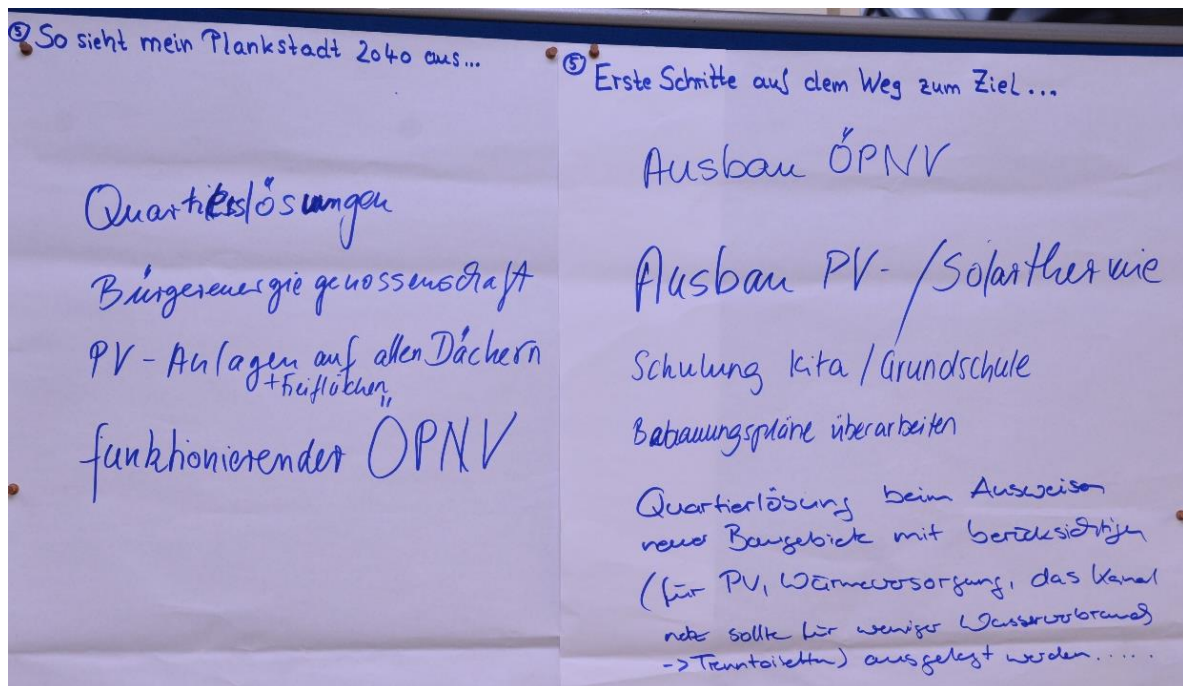 ③ So sieht mein Plankstadt 2040 aus...
Quartierslösungen
Bürgerenergiegenossenschaft
PV-Anlagen auf allen Dächern
+ Freiflächen
funktionierender ÖPNV
⑤ Erste Schritte auf dem Weg zum Ziel...
Ausbau ÖPNV
Ausbau PV-/Solarthermie
Schulung Kita/Grundschule
Bebauungspläne überarbeiten
Quartierlösung beim Ausweisen
neuer Baugebiete mit berücksichtigen
(für PV, Wärmeversorgung, das Kanal
netz sollte für weniger Wasserverbrauch
-> Trenntoiletten) ausgelegt werden.....